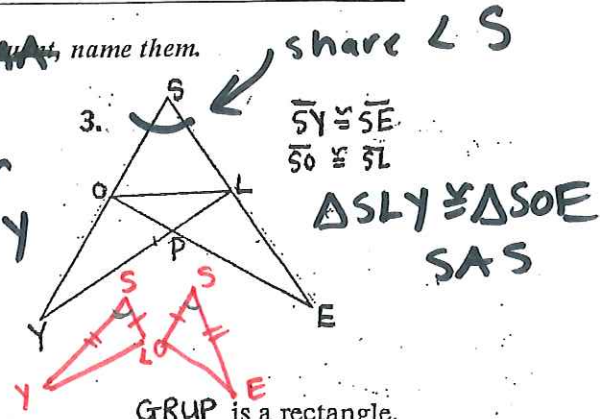 name them.
share ∠ S
3.
S
SY ≅ SE
SO ≅ SL
O
L
△SLY ≅ △SOE
SAS
y
P
Y
E
S
S
L
O
Y
E
GRUP is a rectangle.